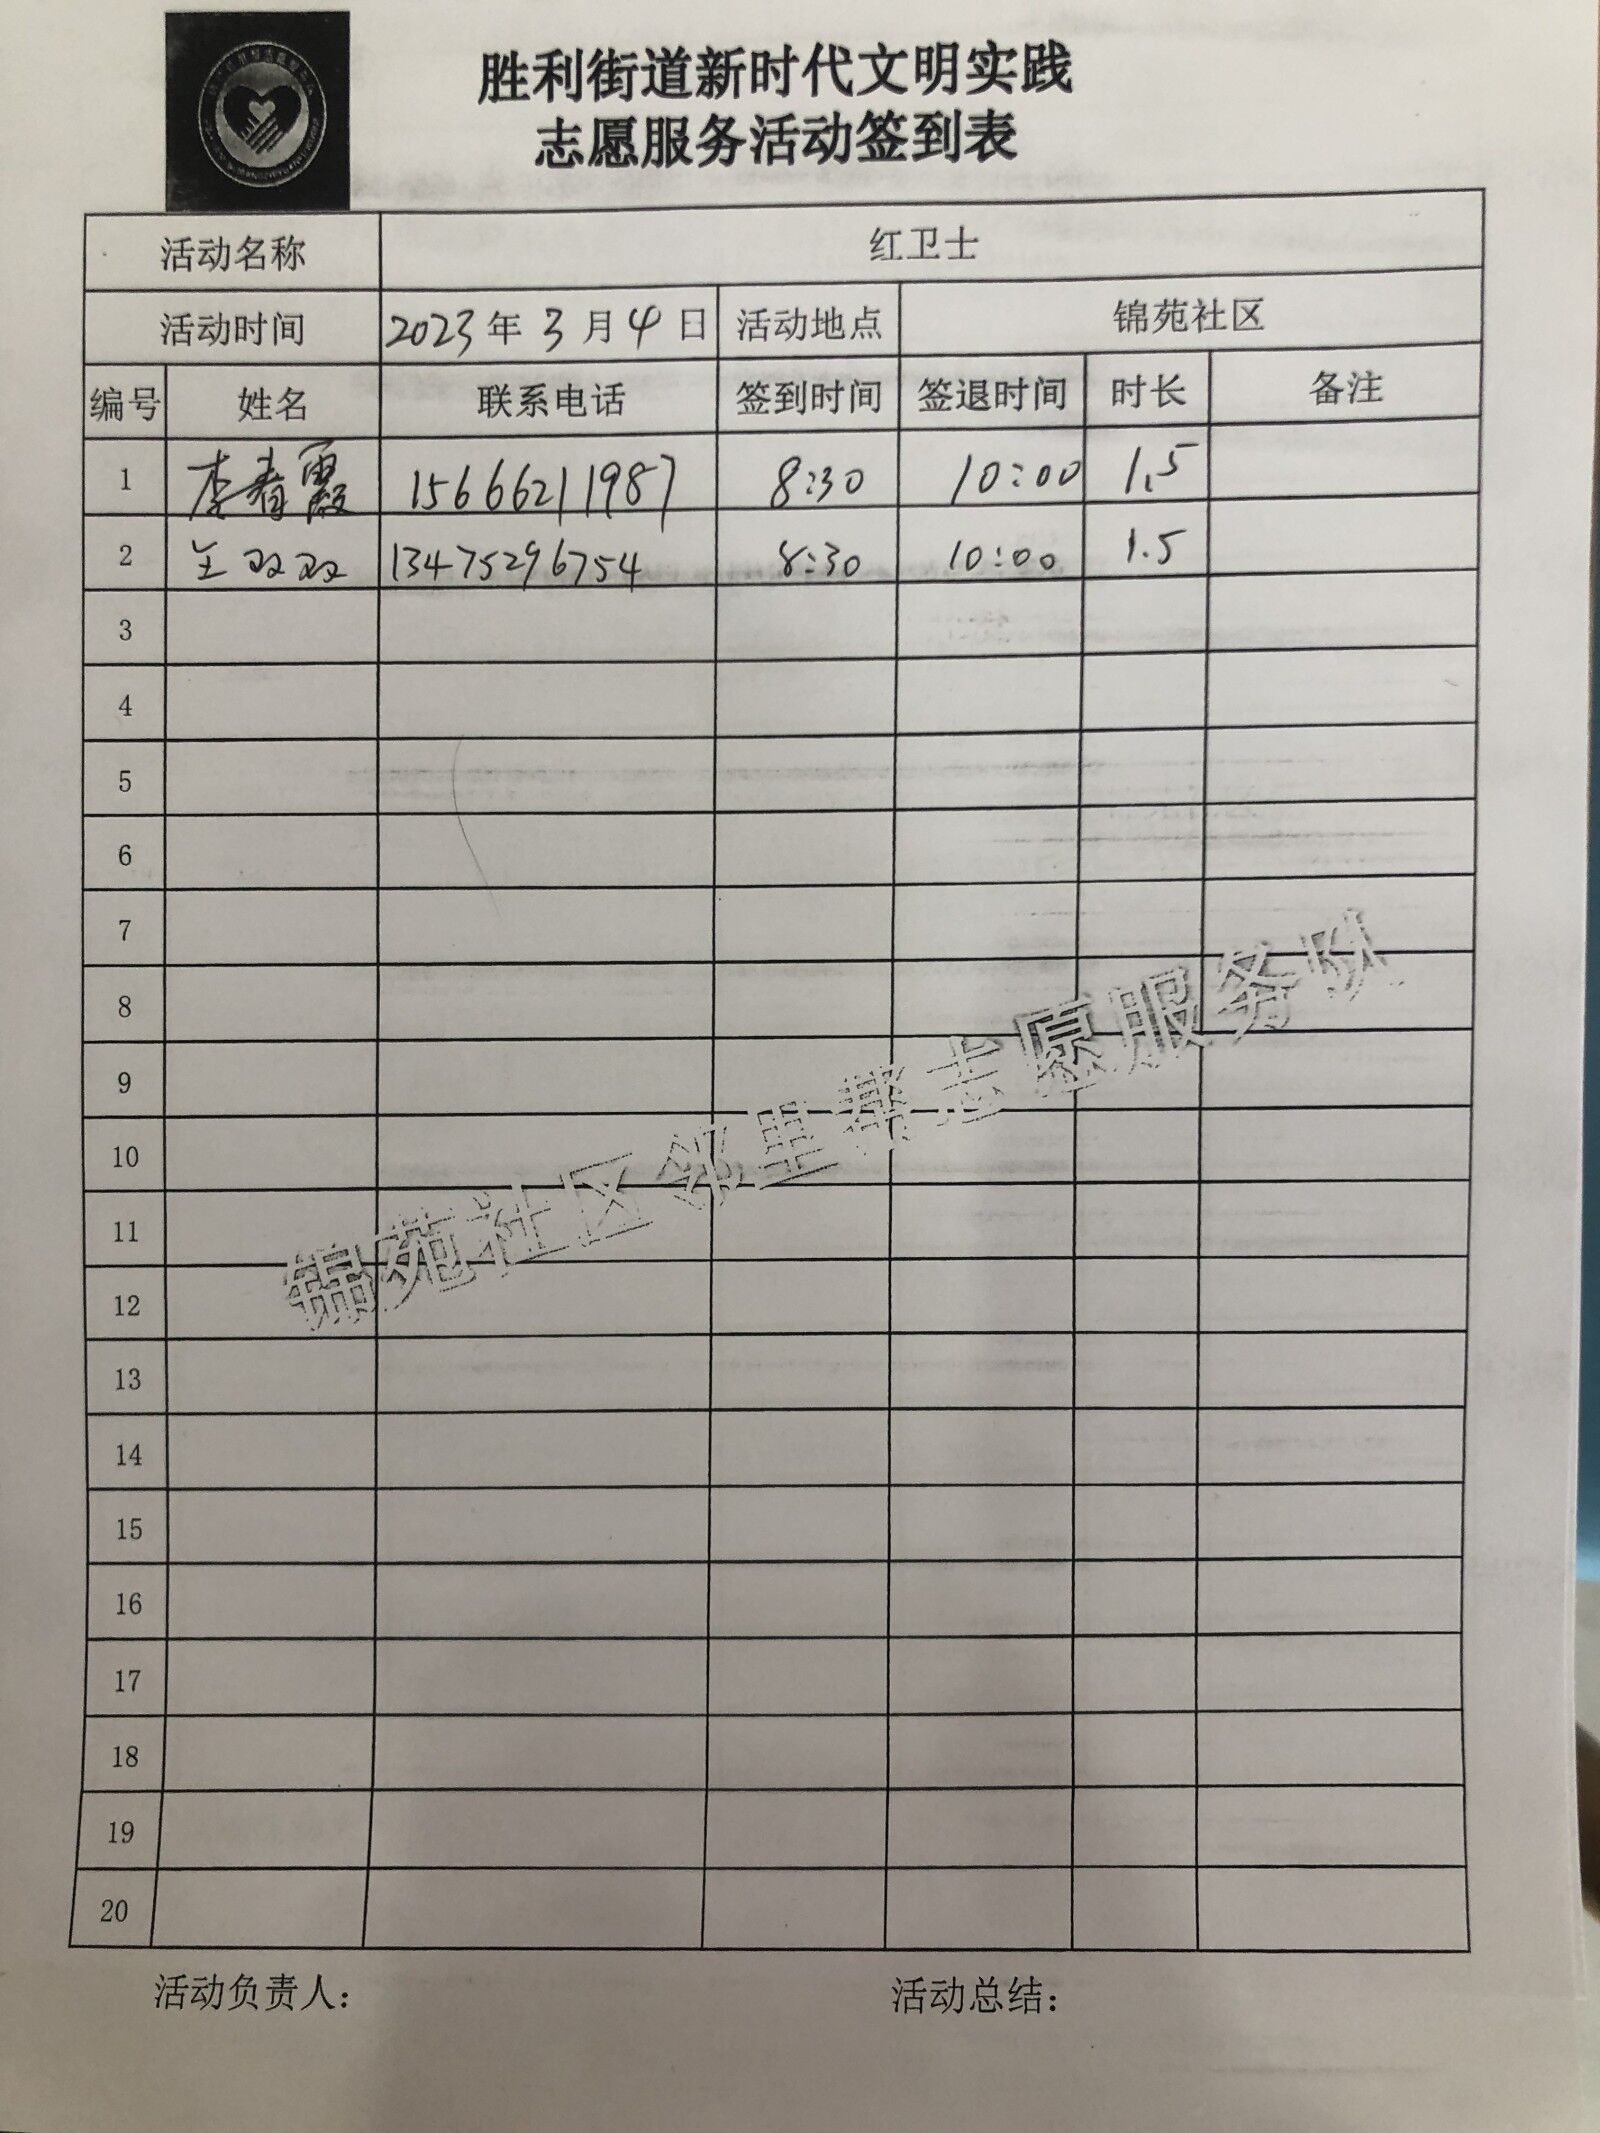 胜利街道新时代文明实践
志愿服务活动签到表
活动名称 红卫士
活动时间 2023年3月4日 活动地点 锦苑社区
编号 姓名 联系电话 签到时间 签退时间 时长 备注
1 李春霞 15666211987 8:30 10:00 1.5
2 王双双 13475296754 8:30 10:00 1.5
3
4
5
6
7
8
9
10
11
12
13
14
15
16
17
18
19
20
锦苑社区邻里帮志愿服务队
活动负责人: 活动总结: